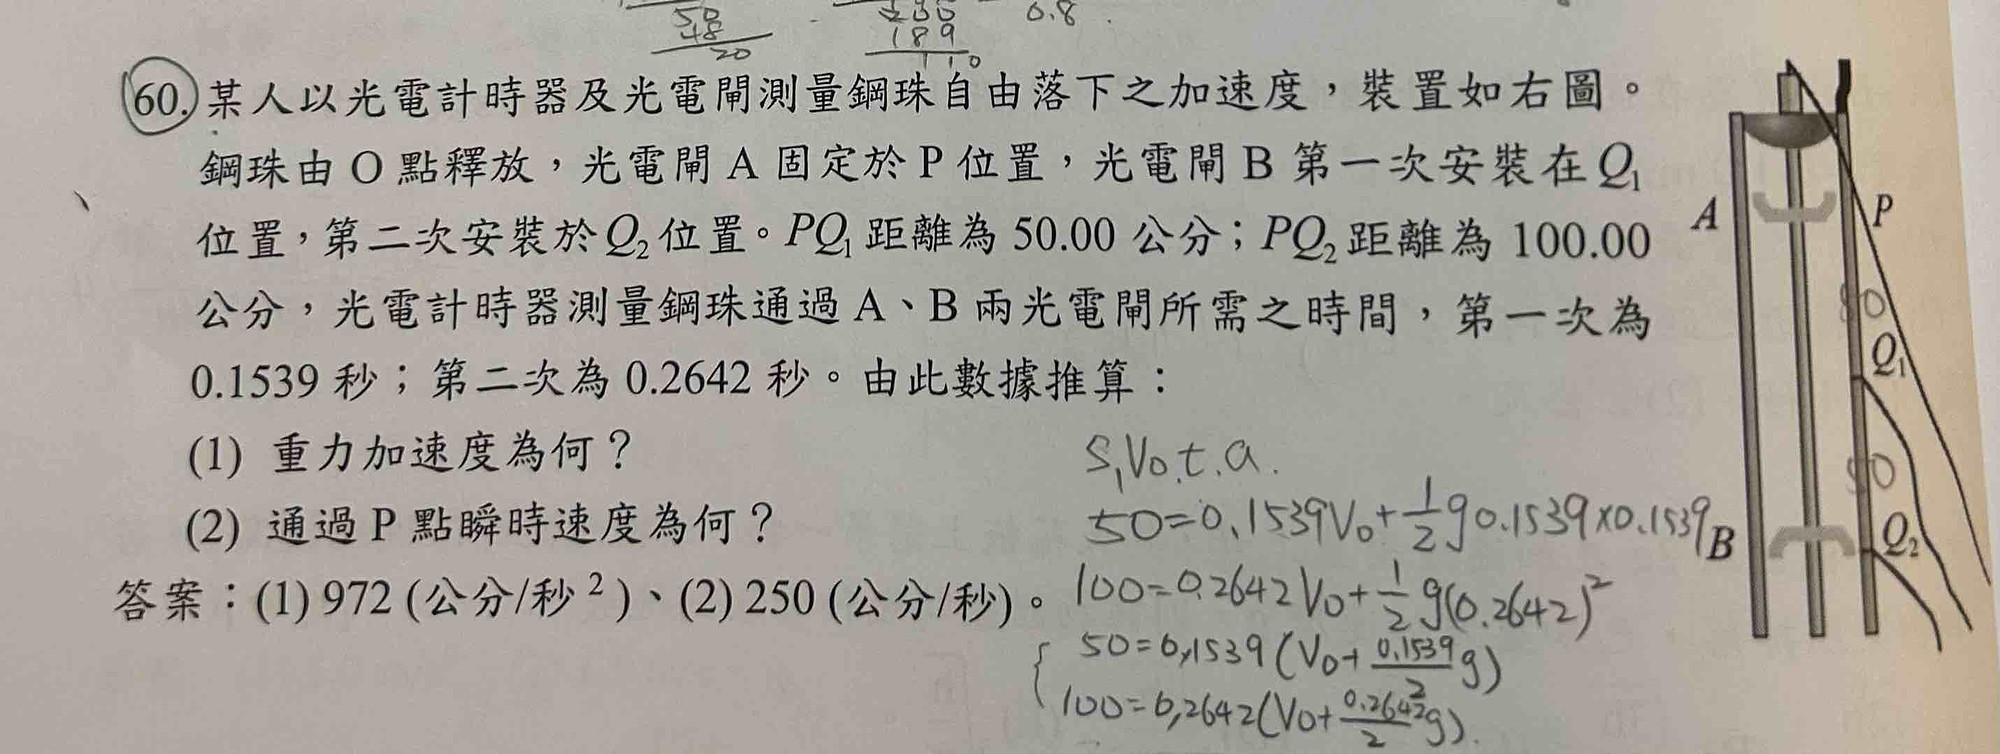 50
48
20
230
189
110
0.8
60. 某人以光電計時器及光電閘測量鋼珠自由落下之加速度，裝置如右圖。
鋼珠由 O 點釋放，光電閘 A 固定於 P 位置，光電閘 B 第一次安裝在 Q₁
位置，第二次安裝於 Q₂ 位置。PQ₁ 距離為 50.00 公分；PQ₂ 距離為 100.00
公分，光電計時器測量鋼珠通過 A、B 兩光電閘所需之時間，第一次為
0.1539 秒；第二次為 0.2642 秒。由此數據推算：
(1) 重力加速度為何？
(2) 通過 P 點瞬時速度為何？
答案：(1) 972 (公分/秒²)、(2) 250 (公分/秒)。
S, V₀. t. a.
50=0.1539V₀+½g0.1539×0.1539
100=0.2642V₀+½g(0.2642)²
50=0.1539(V₀+0.1539/2 g)
100=0.2642(V₀+0.2642/2 g).
A
P
50
Q₁
50
B
Q₂